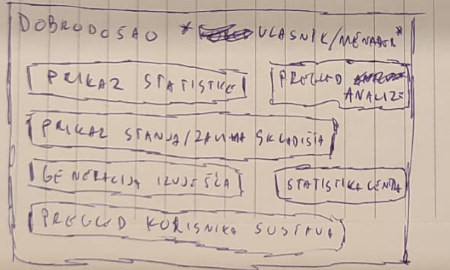 DOBRODOŠAO * VLASNIK/MENAĐER*
PRIKAZ STATISTIKE
PREGLED
ANALIZE
PRIKAZ STANJA/ZALIHA SKLADIŠTA
GENERACIJA IZVJEŠĆA
STATISTIKA
PREGLED KORISNIKA SUSTAVA